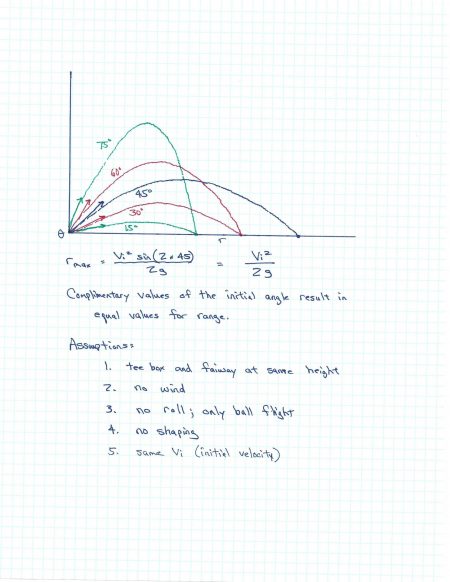 75°
60°
45°
30°
15°
θ
r
rmax = Vi² sin(2·45) / 2g = Vi² / 2g
Complimentary values of the initial angle result in
equal values for range.
Assumptions:
1. tee box and faiway at same height
2. no wind
3. no roll; only ball flight
4. no shaping
5. same Vi (initial velocity)